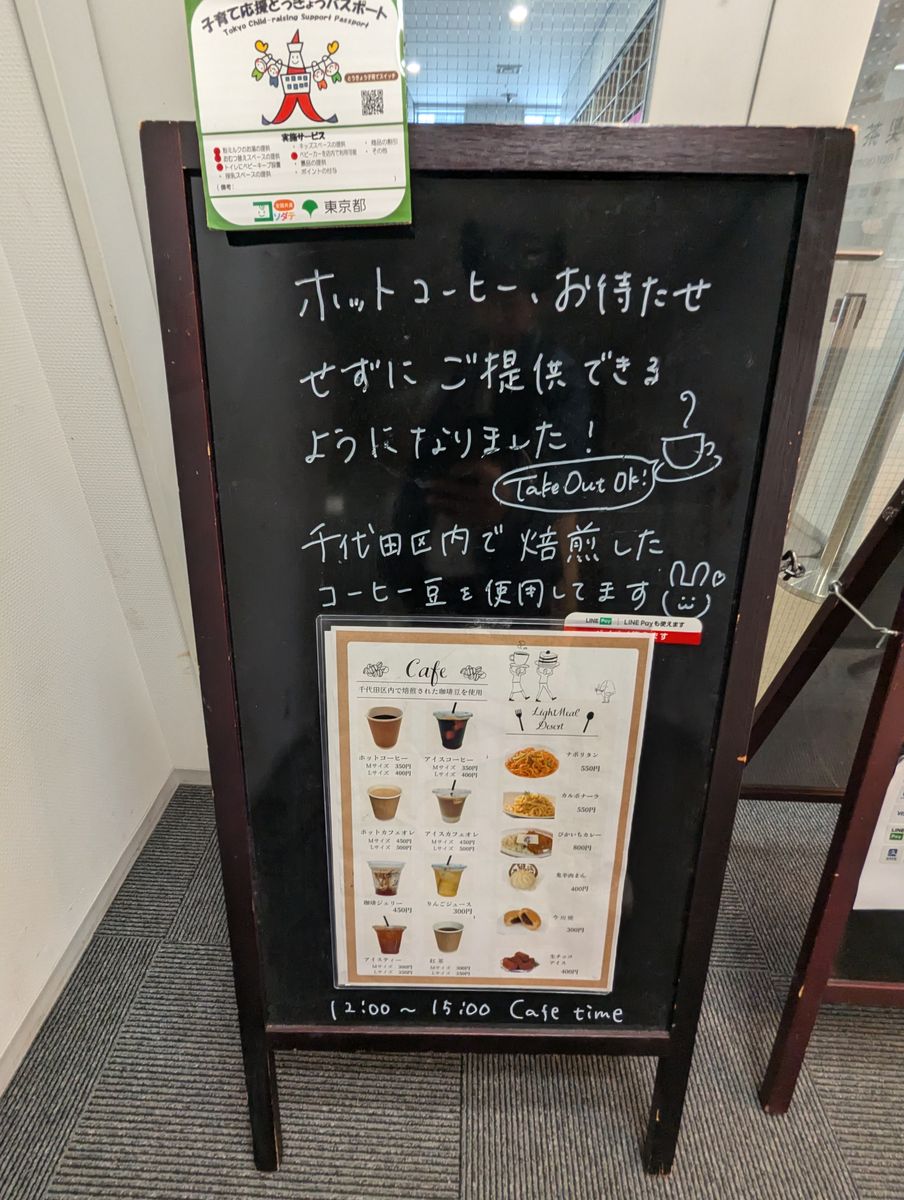 子育て応援とうきょうパスポート
Tokyo Child-raising Support Passport
とうきょう子育てスイッチ
実施サービス
・粉ミルクのお湯の提供
・おむつ替えスペースの提供
・トイレにベビーキープ設置
・授乳スペースの提供
・キッズスペースの提供
・ベビーカーを店内で利用可能
・景品の提供
・ポイントの付与
・商品の割引
・その他
(備考: )
全国共通
コソダテ
東京都
ホットコーヒー、お待たせ
せずに ご提供できる
ようになりました!
Take Out OK!
千代田区内で焙煎した
コーヒー豆を使用してます
LINE Pay LINE Payも使えます
Cafe
千代田区内で焙煎された珈琲豆を使用
ホットコーヒー
Mサイズ 350円
Lサイズ 400円
アイスコーヒー
Mサイズ 350円
Lサイズ 400円
ホットカフェオレ
Mサイズ 450円
Lサイズ 500円
アイスカフェオレ
Mサイズ 450円
Lサイズ 500円
珈琲ジェリー
450円
りんごジュース
300円
アイスティー
Mサイズ 300円
Lサイズ 350円
紅茶
Mサイズ 300円
Lサイズ 350円
LightMeal
Desert
ナポリタン
550円
カルボナーラ
550円
ぴかいちカレー
800円
鬼辛肉まん
400円
今川焼
300円
生チョコ
アイス
400円
12:00～15:00 Cafe time